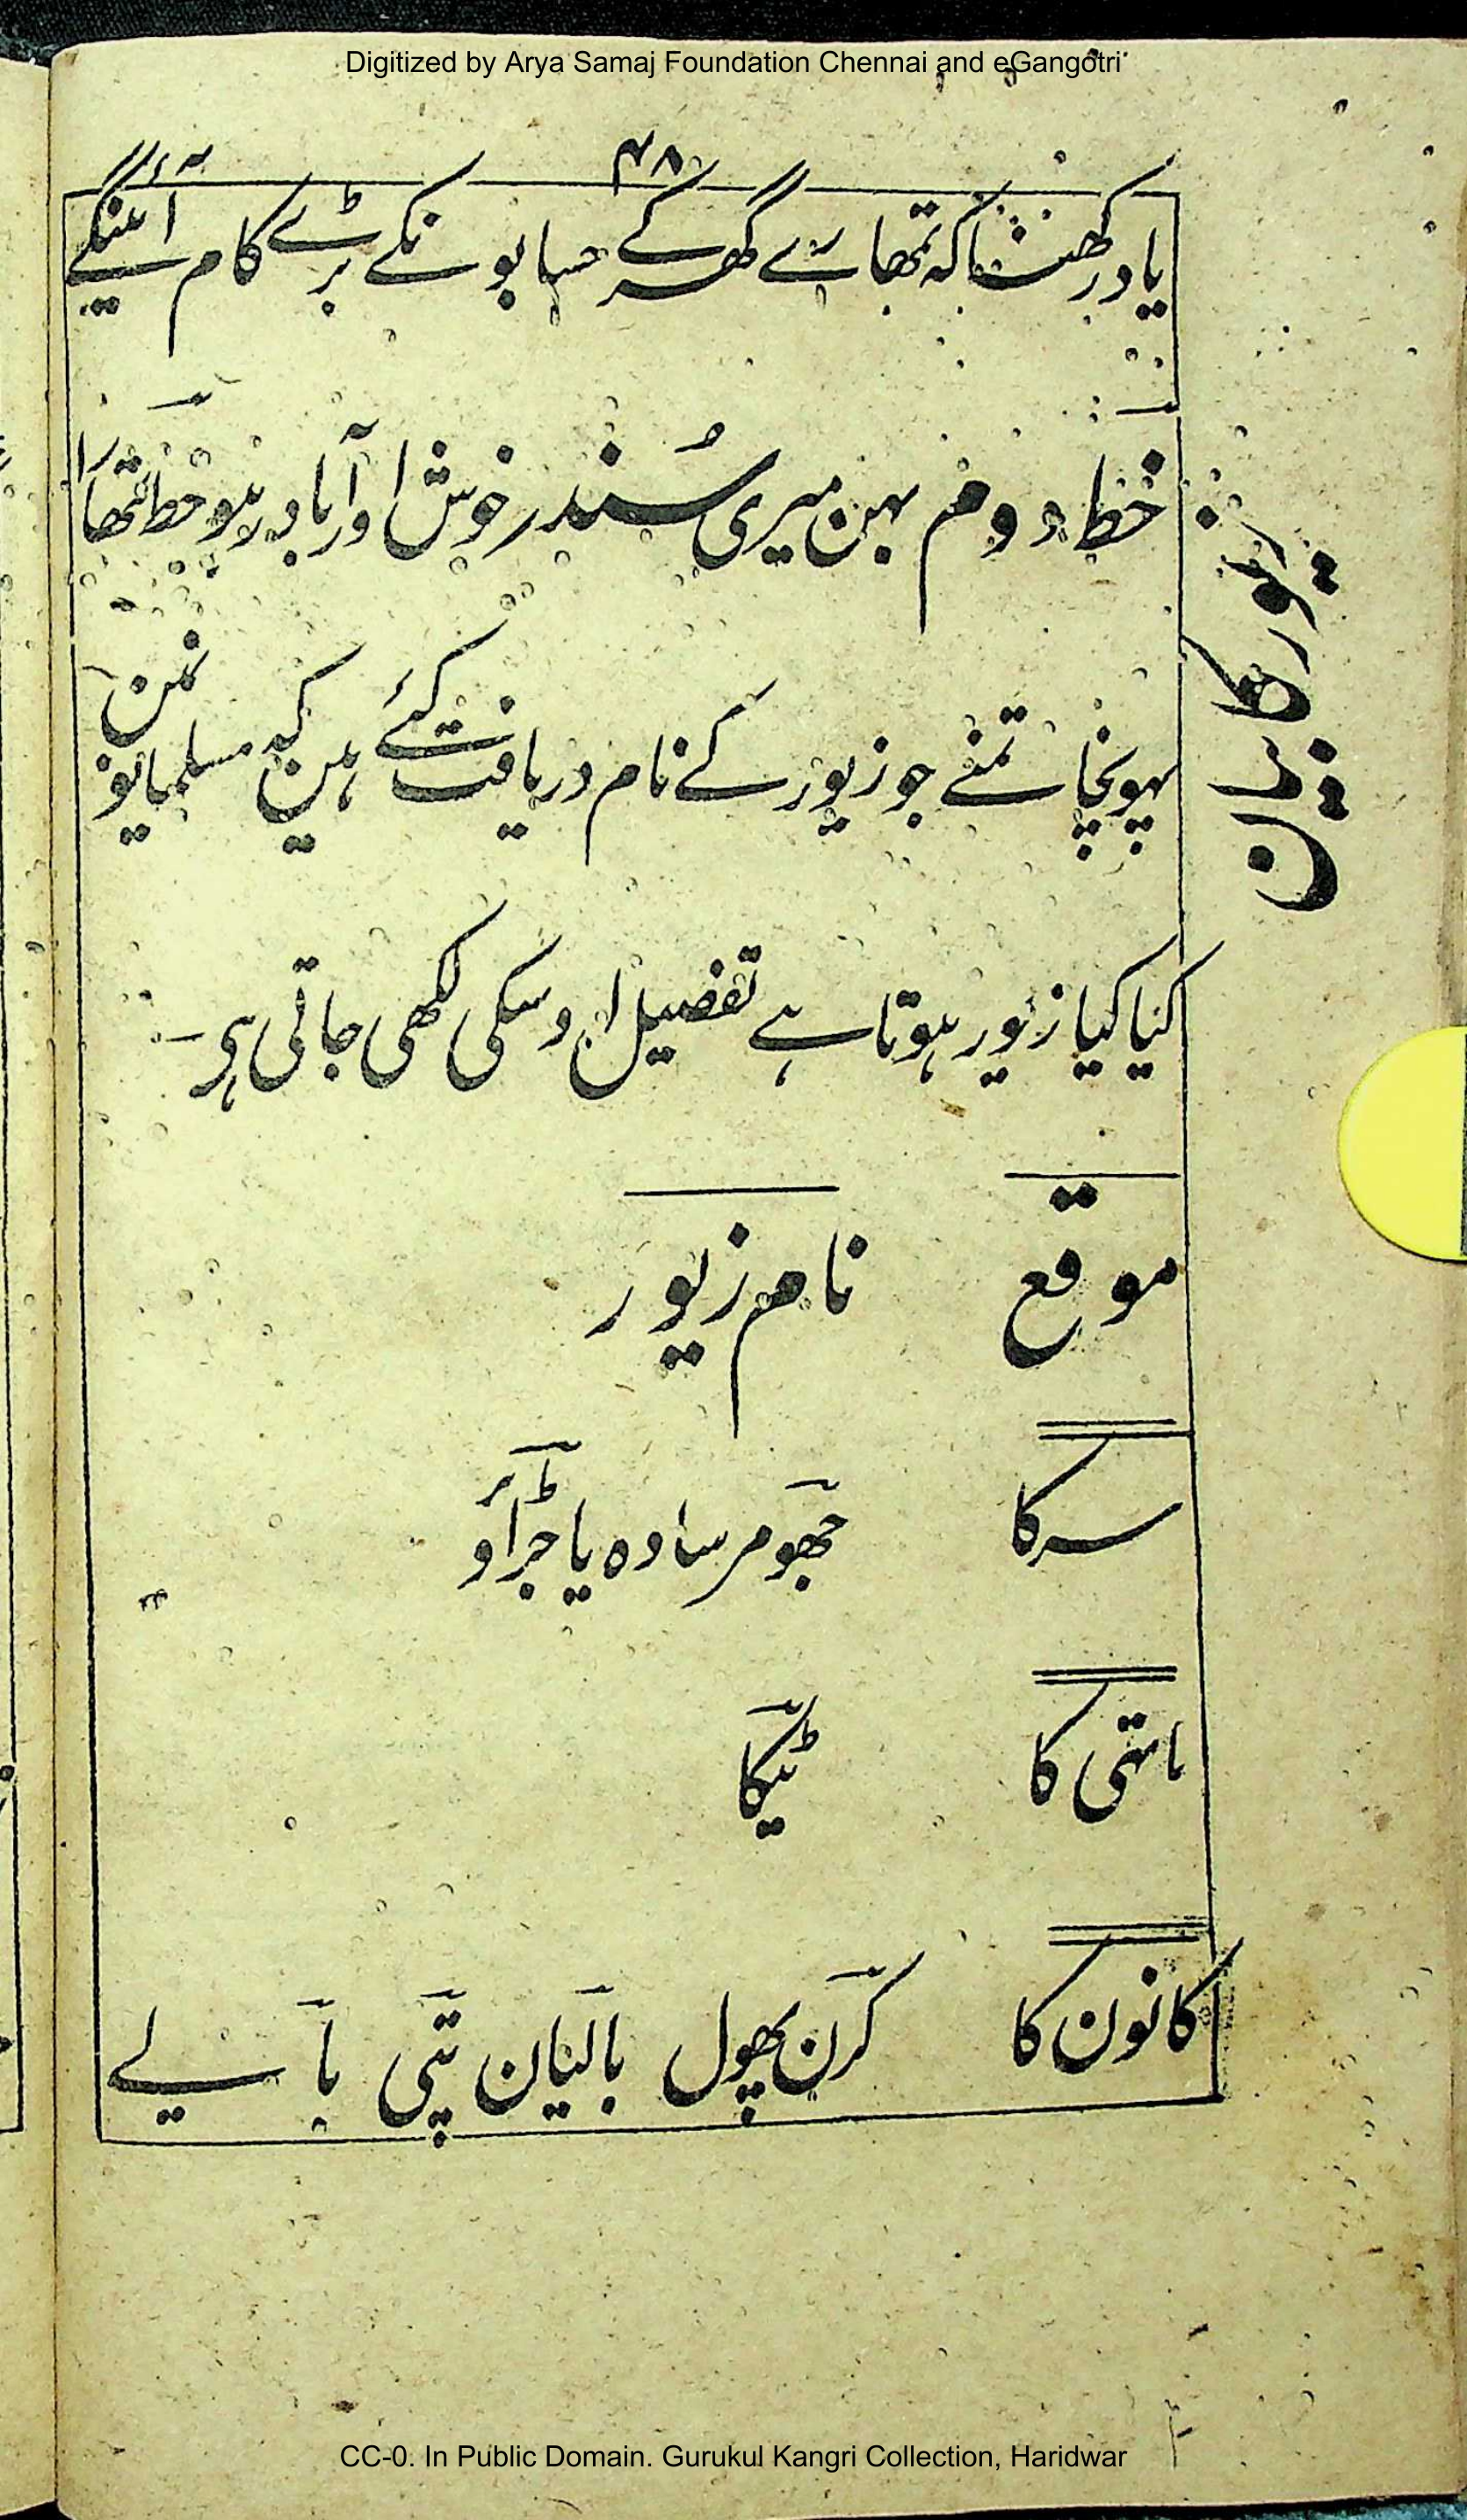 Digitized by Arya Samaj Foundation Chennai and eGangotri
۴۸
یاد رکھنا کہ تمھارے گھر کے حسابونکے بڑے کام آئینگے
خط دوم بہن میری سُندر خوش اور آباد رہو خط تمھارا
پہونچا تمنے جو زیور کے نام دریافت کئے ہین کہ مسلمانونمین
کیا کیا زیور ہوتا ہے تفصیل اوسکی لکھی جاتی ہی
موقع نام زیور
سر کا جھومر سادہ یا جڑاؤ
ماتھی کا ٹیکا
کانون کا کرن پھول بالیان پتی بالے
CC-0. In Public Domain. Gurukul Kangri Collection, Haridwar